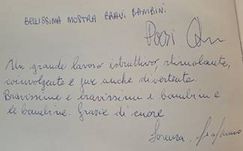 BELLISSIMA MOSTRA BRAVI BAMBINI.
Un grande lavoro istruttivo, stimolante,
coinvolgente e pur anche divertente
Bravissime e bravissimi i bambini e
le bambine. Grazie di cuore